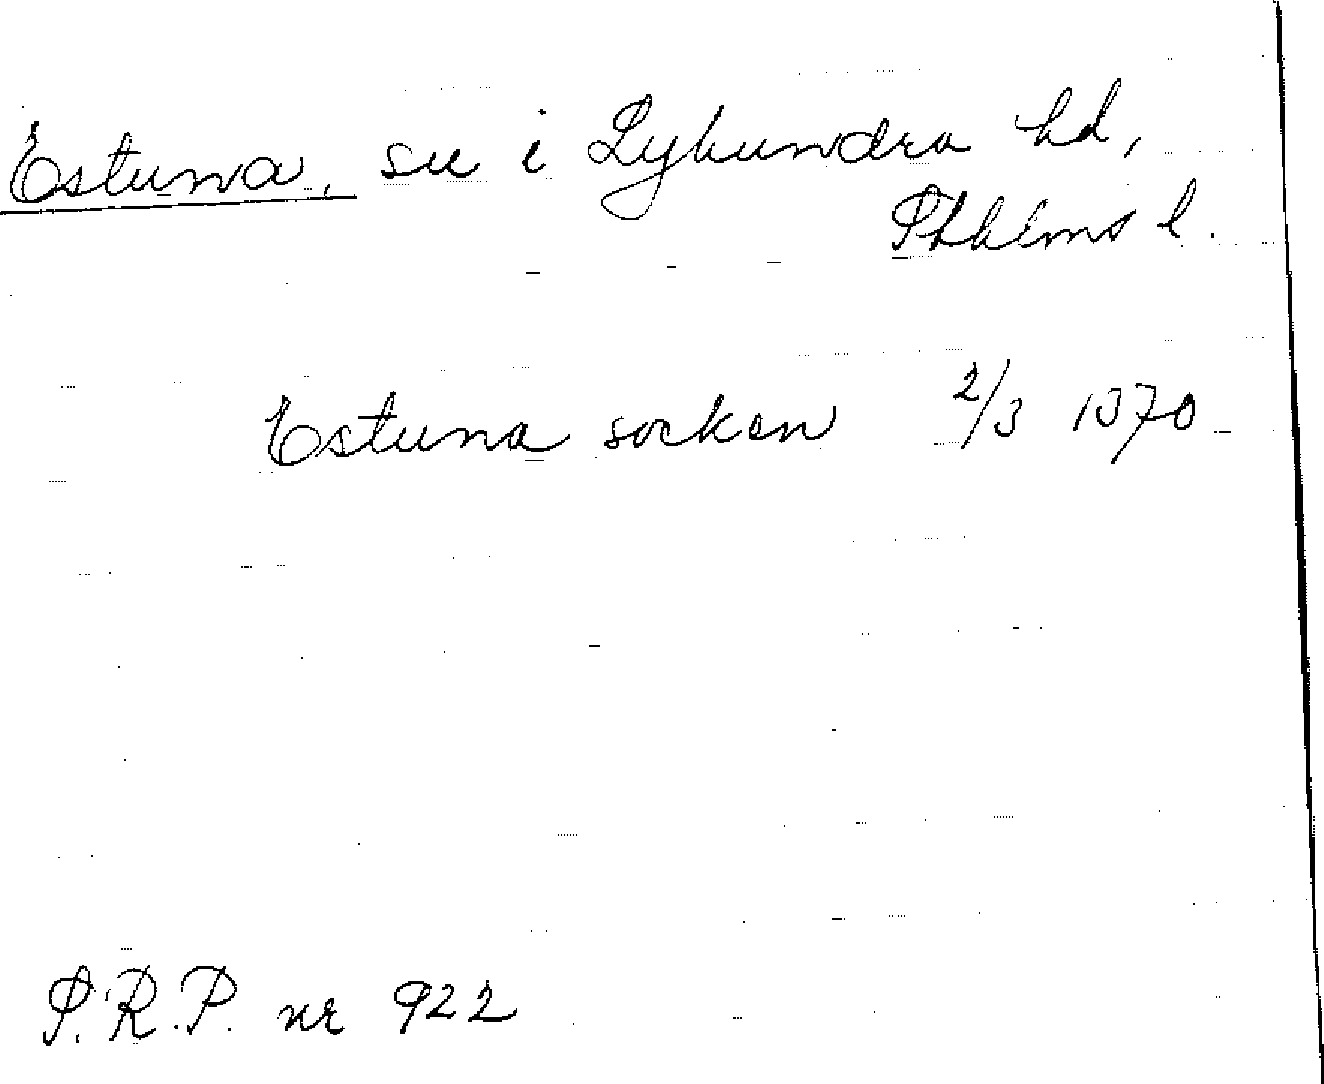 Estuna, sn i Lyhundra hd,
Sthlms l.
Estuna socken 2/3 1370
S.R.P. nr 922